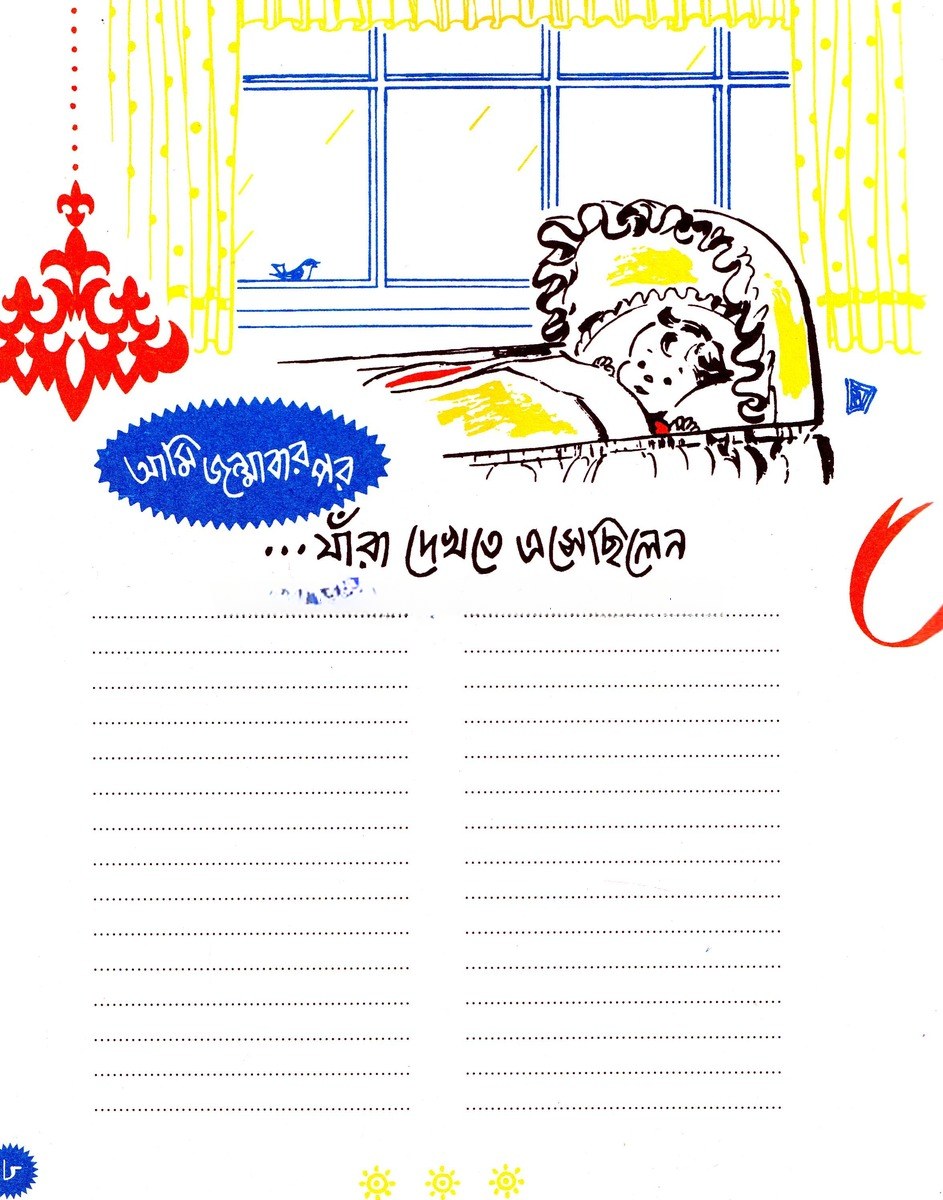 আমি জন্মাবার পর
...যাঁরা দেখতে এসেছিলেন
৮